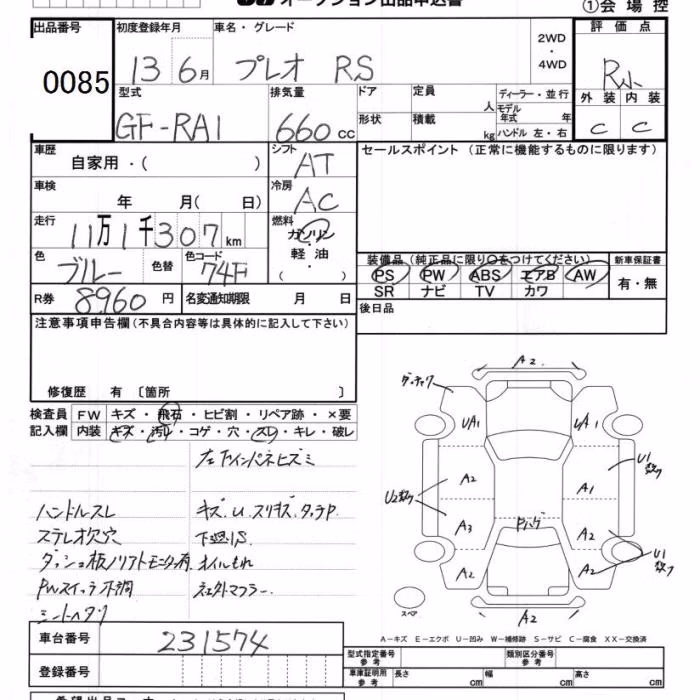 オークション出品申込書
①会場控
出品番号
0085
初度登録年月
13 6月
車名・グレード
プレオ RS
2WD
・
4WD
評価点
R小
外装 内装
C C
型式
GF-RA1
排気量
660 cc
ドア
定員
人
形状
積載
kg
ディーラー・並行
モデル年式 年
ハンドル 左・右
車歴
自家用・( )
シフト
AT
セールスポイント(正常に機能するものに限ります)
車検
年 月( 日)
冷房
AC
走行
11万1千307km
燃料
ガソリン
軽油
( )
色
ブルー
色替
色コード
74F
装備品(純正品に限り○をつけてください)
PS PW ABS エアB AW
SR ナビ TV カワ
新車保証書
有・無
R券
8960円
名変通知期限 月 日
後日品
注意事項申告欄(不具合内容等は具体的に記入して下さい)
修復歴 有〔箇所 〕
検査員記入欄
FW キズ・飛石・ヒビ割・リペア跡・×要
内装 キズ・汚レ・コゲ・穴・スレ・キレ・破レ
左下インパネヒズミ
ハンドルスレ
キズ、U、スリキズ、タッチP
ステレオ欠穴
下廻りS
ダッシュ板ノリアトモニター有
オイルもれ
PWスイッチ不調
社外マフラー
シートヘタリ
A2
UA1
UA1
A2
A1
U1
U2
A3
Pハゲ
A2
A2
A2
U1
A2
スペア
A−キズ E−エクボ U−凹み W−補修跡 S−サビ C−腐食 XX−交換済
車台番号
231574
登録番号
型式指定番号 参考
類別区分番号 参考
車庫証明用 参考
長さ cm 幅 cm 高さ cm